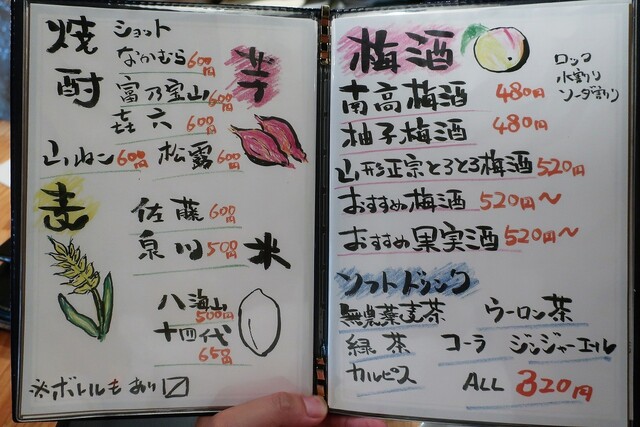 焼酎
ショット
芋
なかむら 600円
富乃宝山 600円
㐂六 600円
山ねこ 600円
松露 600円
麦
佐藤 600円
泉川 500円
米
八海山 500円
十四代 650円
※ボトルもあり〼
梅酒
ロック
水割り
ソーダ割り
南高梅酒 480円
柚子梅酒 480円
山形正宗とろとろ梅酒 520円
おすすめ梅酒 520円〜
おすすめ果実酒 520円〜
ソフトドリンク
無農薬麦茶 ウーロン茶
緑茶 コーラ ジンジャーエール
カルピス ALL 320円